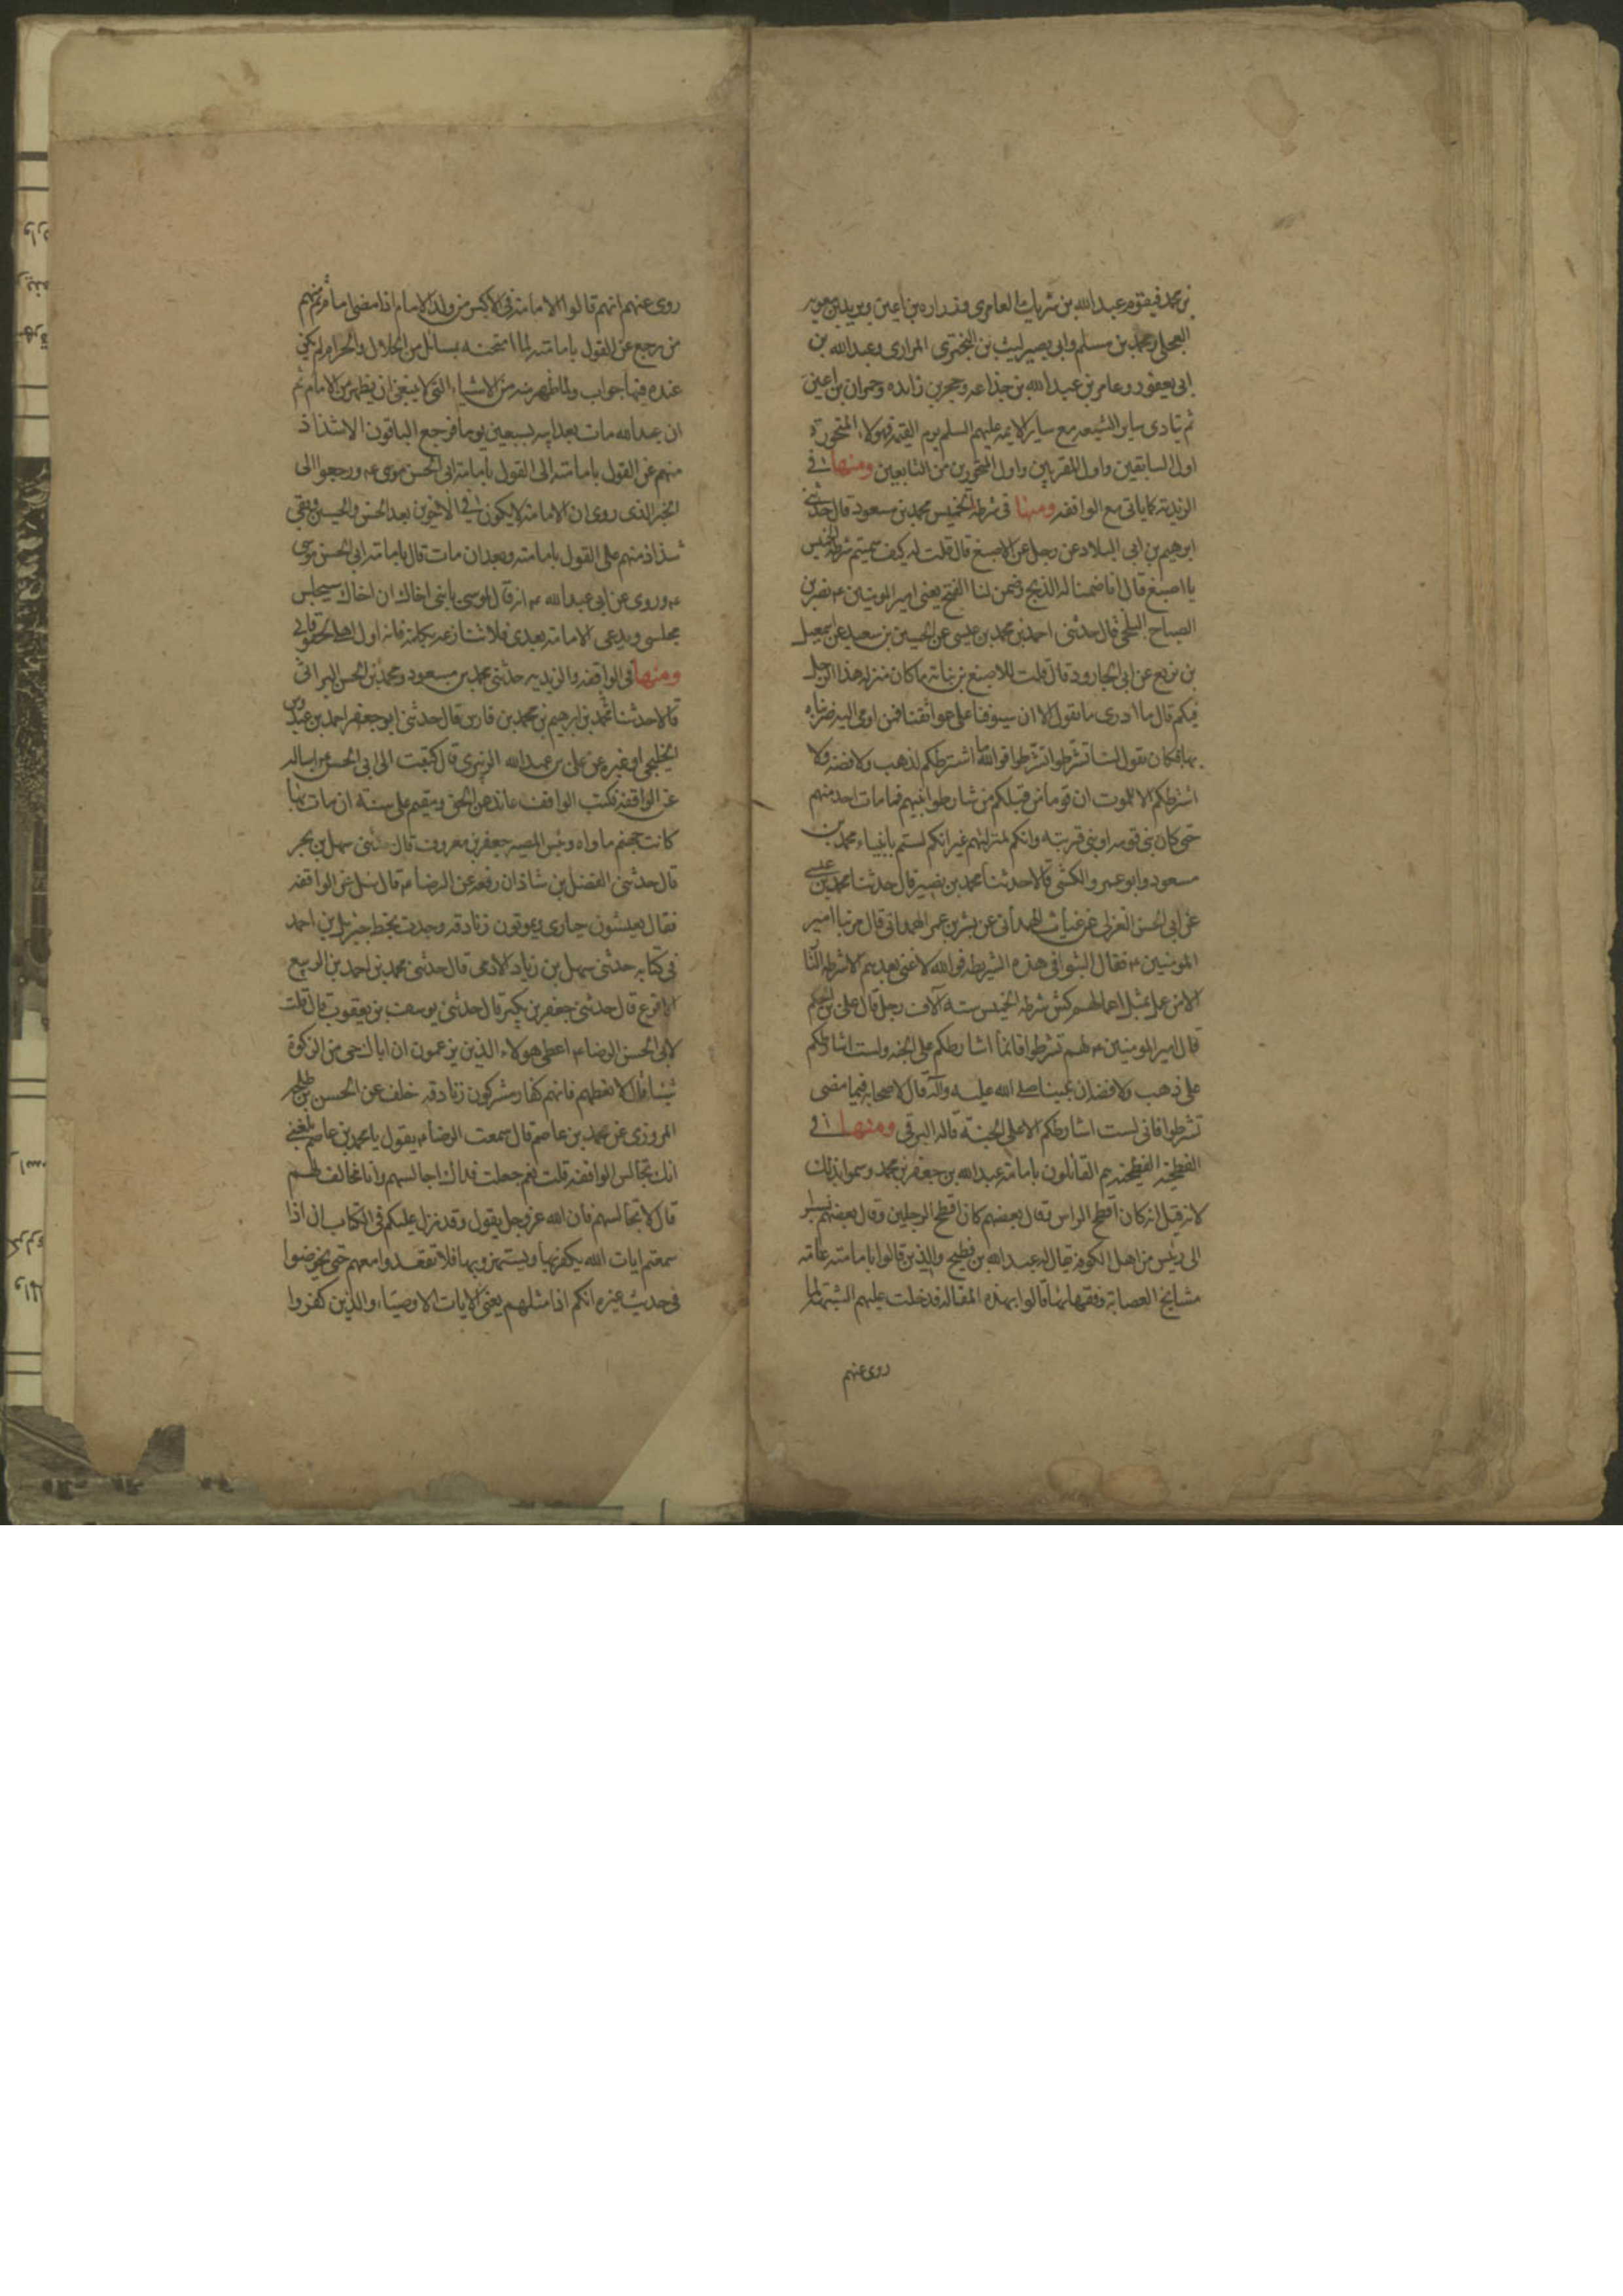 بن محمد فيقوم عبد الله بن شريك العامري وزراره بن اعين وبريد بن معويه
العجلي ومحمد بن مسلم وابي بصير ليث بن البختري المرادي وعبد الله بن
ابي يعفور وعامر بن عبد الله بن جذاعه وحجر بن زايده وحمران بن اعين
ثم ينادي ساير الشيعه مع ساير الايمه عليهم السلم يوم القيمه فهولاء المتحوره
اول السابقين واول المقربين واول المتحورين من التابعين ومنها في
الزيديه كما ياتي مع الواقفه ومنها في شرطه الخميس محمد بن مسعود قال حدثني
ابرهيم بن ابي البلاد عن رجل عن الاصبغ قال قلت له كيف سميتم شرطه الخميس
يا اصبغ قال انا ضمنا له الذبح وضمن لنا الفتح يعني امير المومنين ع نصر بن
الصباح البلخي قال حدثني احمد بن محمد بن عيسى عن الحسين بن سعيد عن اسمعيل
بن بزيع عن ابي الجارود قال قلت للاصبغ بن نباته ما كان منزله هذا الرجل
فيكم قال ما ادري ما تقول الا ان سيوفنا على عواتقنا فمن اومى اليه ضربناه
بها فكان يقول لنا تشرطوا تشرطوا فوالله ما اشتراطكم لذهب ولا فضه ولا
اشتراطكم الا للموت ان قوما من قبلكم من تشارطوا بينهم فما مات احد منهم
حتى كان نبي قومه او نبي قريته وانكم لمنزلتهم غير انكم لستم بانبياء محمد بن
مسعود وابو عمرو الكشي قالا حدثنا محمد بن نصير قال حدثنا محمد بن عيسى
عن ابي الحسن العزلي عن غياث الهمداني عن بشر بن عمرو الهمداني قال مر بنا امير
المومنين ع فقال البثوا في هذه الشرطه فوالله لا غنى بعدهم الا شرطه النار
الا من عمل بمثل اعمالهم كش شرطه الخميس سته آلاف رجل قال علي بن الحكم
قال امير المومنين ع لهم تشرطوا فانما اشارطكم على الجنه ولست اشارطكم
على ذهب ولا فضه ان نبينا صلى الله عليه وآله قال لاصحابه فيما مضى
تشرطوا فاني لست اشارطكم الا على الجنة قاله البرقي ومنها في
الفطحيه الفطحيه هم القائلون بامامة عبد الله بن جعفر بن محمد وسموا بذلك
لانه قيل انه كان افطح الراس وقال بعضهم كان افطح الرجلين وقال بعضهم نسبوا
الى رئيس من اهل الكوفه يقال له عبد الله بن فطيح والذين قالوا بامامته عامة
مشايخ العصابة وفقهائها قالوا بهذه المقاله فدخلت عليهم الشبهة لما
روى عنهم
روى عنهم انهم قالوا الامامة في الاكبر من ولد الامام اذا مضى امام ثم منهم
من رجع عن القول بامامته لما امتحنه بمسائل من الحلال والحرام لم يكن
عنده فيها جواب ولما ظهر منه من الاشياء التي لا ينبغي ان يظهر من الامام ثم
ان عبد الله مات بعد ابيه بسبعين يوما فرجع الباقون الا شذاذ
منهم عن القول بامامته الى القول بامامة ابي الحسن موسى ع ورجعوا الى
الخبر الذي روى ان الامامة لا يكون في الاخوين بعد الحسن والحسين وبقي
شذاذ منهم على القول بامامته وبعد ان مات قال بامامة ابي الحسن موسى
ع وروي عن ابي عبد الله ع انه قال لموسى يا بني اخاك ان اخاك سيجلس
مجلسي ويدعي الامامة بعدي فلا تنازعه بكلمة فانه اول اهلي لحوقا بي
ومنها في الواقفه والزيديه حدثني محمد بن مسعود ومحمد بن الحسن البراثي
قالا حدثنا محمد بن ابرهيم بن محمد بن فارس قال حدثني ابو جعفر احمد بن عبدوس
الخلنجي او غيره عن علي بن عبد الله الزبيري قال كتبت الى ابي الحسن ع اساله
عن الواقفه فكتب الواقف عاند عن الحق ومقيم على سيئة ان مات بها
كانت جهنم ماواه وبئس المصير جعفر بن معروف قال حدثني سهل بن بحر
قال حدثني الفضل بن شاذان رفعه عن الرضا ع قال سئل عن الواقفه
فقال يعيشون حيارى ويموتون زنادقه وجدت بخط جبريل بن احمد
في كتابه حدثني سهل بن زياد الادمي قال حدثني محمد بن احمد بن الربيع
الاقرع قال حدثني جعفر بن بكير قال حدثني يوسف بن يعقوب قال قلت
لابي الحسن الرضا ع اعطي هولاء الذين يزعمون ان اباك حي من الزكوة
شيئا قال لا تعطهم فانهم كفار مشركون زنادقه خلف عن الحسن بن طلحه
المروزي عن محمد بن عاصم قال سمعت الرضا ع يقول يا محمد بن عاصم بلغني
انك تجالس الواقفه قلت نعم جعلت فداك اجالسهم وانا مخالف لهم
قال لا تجالسهم فان الله عز وجل يقول وقد نزل عليكم في الكتاب ان اذا
سمعتم ايات الله يكفر بها ويستهزء بها فلا تقعدوا معهم حتى يخوضوا
في حديث غيره انكم اذا مثلهم يعني الايات الاوصياء والذين كفروا